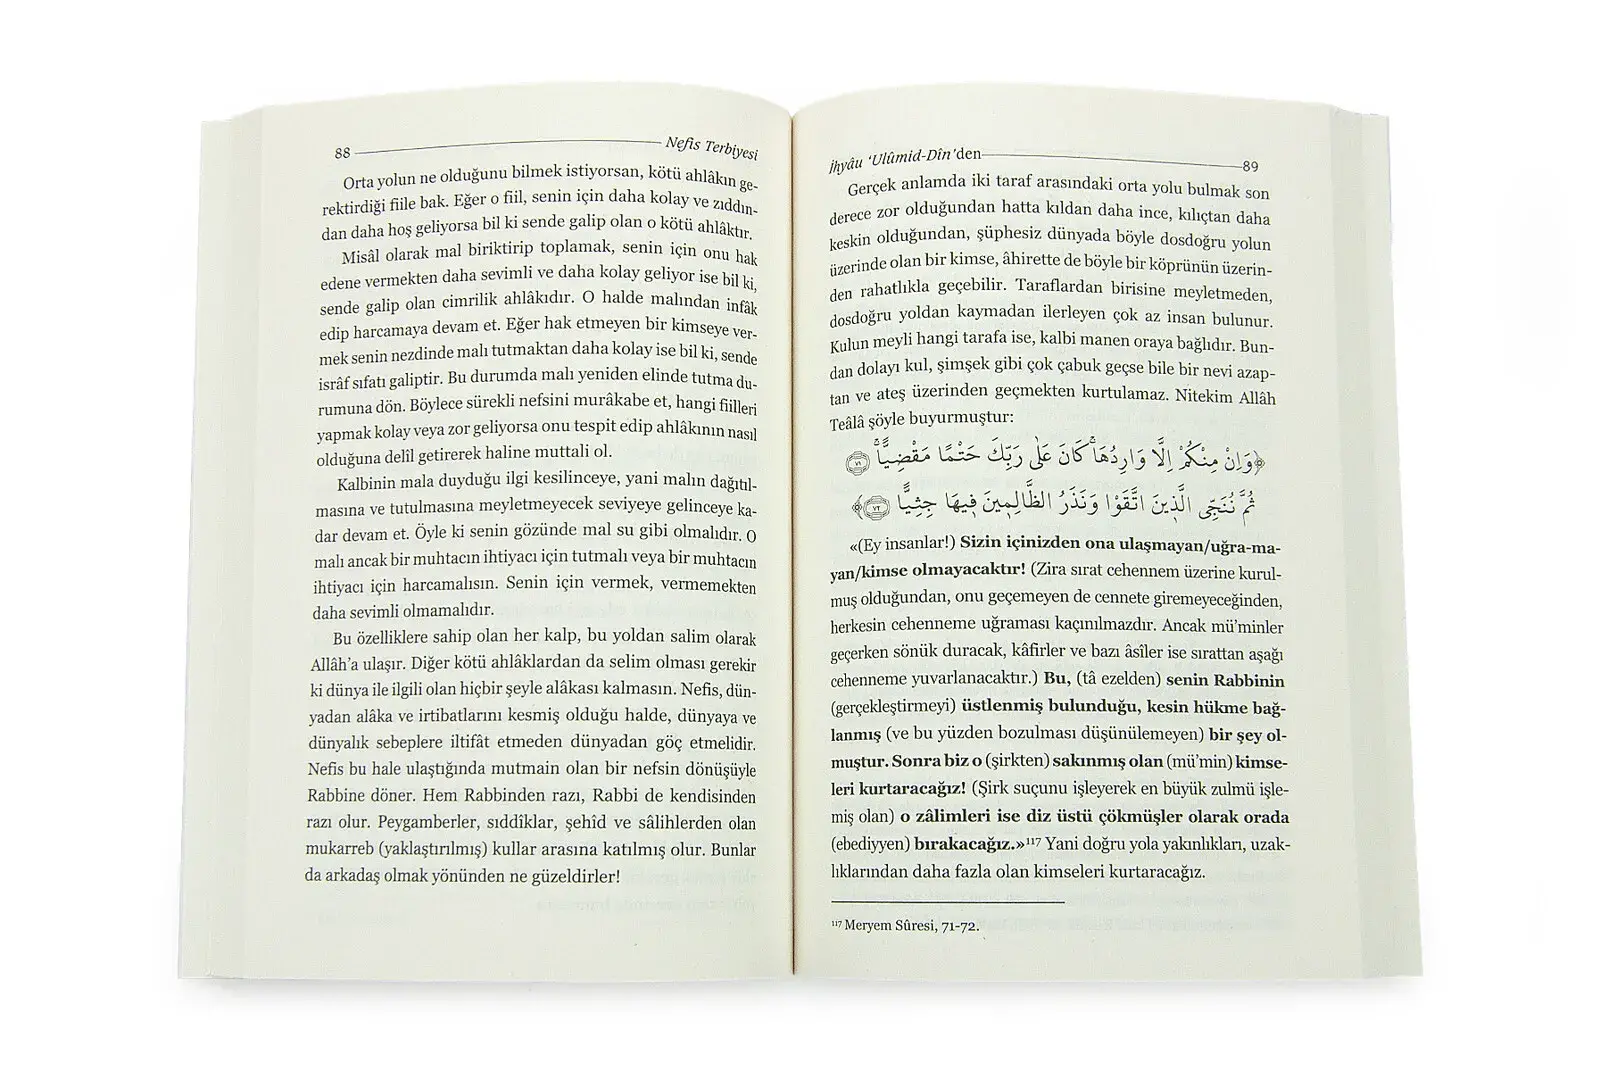 88 Nefis Terbiyesi
Orta yolun ne olduğunu bilmek istiyorsan, kötü ahlâkın ge-
rektirdiği fiile bak. Eğer o fiil, senin için daha kolay ve zıddın-
dan daha hoş geliyorsa bil ki sende galip olan o kötü ahlâktır.
Misâl olarak mal biriktirip toplamak, senin için onu hak
edene vermekten daha sevimli ve daha kolay geliyor ise bil ki,
sende galip olan cimrilik ahlâkıdır. O halde malından infâk
edip harcamaya devam et. Eğer hak etmeyen bir kimseye ver-
mek senin nezdinde malı tutmaktan daha kolay ise bil ki, sende
isrâf sıfatı galiptir. Bu durumda malı yeniden elinde tutma du-
rumuna dön. Böylece sürekli nefsini murâkabe et, hangi fiilleri
yapmak kolay veya zor geliyorsa onu tespit edip ahlâkının nasıl
olduğuna delîl getirerek haline muttali ol.
Kalbinin mala duyduğu ilgi kesilinceye, yani malın dağıtıl-
masına ve tutulmasına meyletmeyecek seviyeye gelinceye ka-
dar devam et. Öyle ki senin gözünde mal su gibi olmalıdır. O
malı ancak bir muhtacın ihtiyacı için tutmalı veya bir muhtacın
ihtiyacı için harcamalısın. Senin için vermek, vermemekten
daha sevimli olmamalıdır.
Bu özelliklere sahip olan her kalp, bu yoldan salim olarak
Allâh'a ulaşır. Diğer kötü ahlâklardan da selim olması gerekir
ki dünya ile ilgili olan hiçbir şeyle alâkası kalmasın. Nefis, dün-
yadan alâka ve irtibatlarını kesmiş olduğu halde, dünyaya ve
dünyalık sebeplere iltifât etmeden dünyadan göç etmelidir.
Nefis bu hale ulaştığında mutmain olan bir nefsin dönüşüyle
Rabbine döner. Hem Rabbinden razı, Rabbi de kendisinden
razı olur. Peygamberler, sıddîklar, şehîd ve sâlihlerden olan
mukarreb (yaklaştırılmış) kullar arasına katılmış olur. Bunlar
da arkadaş olmak yönünden ne güzeldirler!
İhyâu 'Ulûmid-Dîn'den 89
Gerçek anlamda iki taraf arasındaki orta yolu bulmak son
derece zor olduğundan hatta kıldan daha ince, kılıçtan daha
keskin olduğundan, şüphesiz dünyada böyle dosdoğru yolun
üzerinde olan bir kimse, âhirette de böyle bir köprünün üzerin-
den rahatlıkla geçebilir. Taraflardan birisine meyletmeden,
dosdoğru yoldan kaymadan ilerleyen çok az insan bulunur.
Kulun meyli hangi tarafa ise, kalbi manen oraya bağlıdır. Bun-
dan dolayı kul, şimşek gibi çok çabuk geçse bile bir nevi azap-
tan ve ateş üzerinden geçmekten kurtulamaz. Nitekim Allâh
Teâlâ şöyle buyurmuştur:
﴿وَاِنْ مِنْكُمْ اِلَّا وَارِدُهَاۚ كَانَ عَلٰى رَبِّكَ حَتْمًا مَقْضِيًّاۚ ﴿٧١﴾
ثُمَّ نُنَجِّي الَّذ۪ينَ اتَّقَوْا وَنَذَرُ الظَّالِم۪ينَ ف۪يهَا جِثِيًّا ﴿٧٢﴾﴾
«(Ey insanlar!) Sizin içinizden ona ulaşmayan/uğra-ma-
yan/kimse olmayacaktır! (Zira sırat cehennem üzerine kurul-
muş olduğundan, onu geçemeyen de cennete giremeyeceğinden,
herkesin cehenneme uğraması kaçınılmazdır. Ancak mü'minler
geçerken sönük duracak, kâfirler ve bazı âsîler ise sırattan aşağı
cehenneme yuvarlanacaktır.) Bu, (tâ ezelden) senin Rabbinin
(gerçekleştirmeyi) üstlenmiş bulunduğu, kesin hükme bağ-
lanmış (ve bu yüzden bozulması düşünülemeyen) bir şey ol-
muştur. Sonra biz o (şirkten) sakınmış olan (mü'min) kimse-
leri kurtaracağız! (Şirk suçunu işleyerek en büyük zulmü işle-
miş olan) o zâlimleri ise diz üstü çökmüşler olarak orada
(ebediyyen) bırakacağız.»¹¹⁷ Yani doğru yola yakınlıkları, uzak-
lıklarından daha fazla olan kimseleri kurtaracağız.
¹¹⁷ Meryem Sûresi, 71-72.